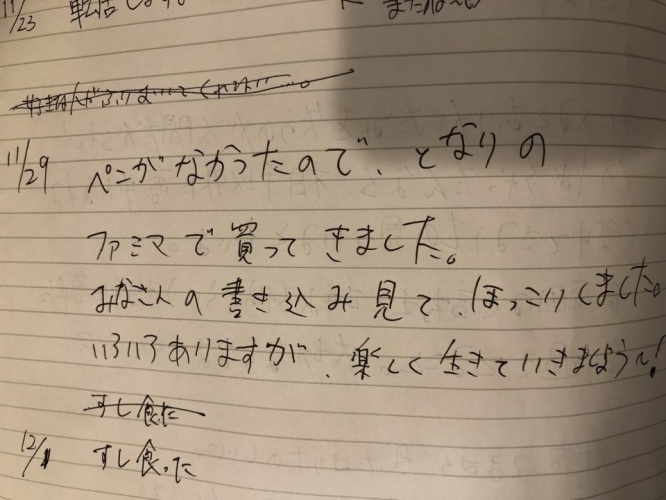 11/23 転居しました
11/29 ペンがなかったので、となりの
ファミマで買ってきました。
みなさんの書き込み見て、ほっこりしました。
いろいろありますが、楽しく生きていきましょう〜!
すし食った
12/1 すし食った